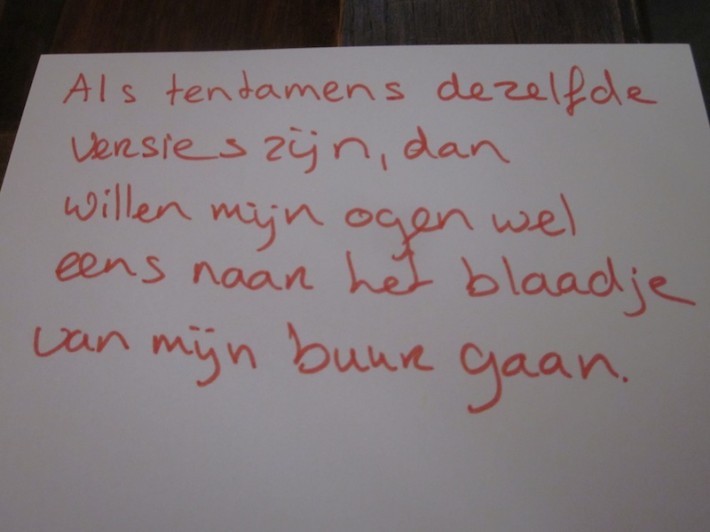 Als tentamens dezelfde
versies zijn, dan
willen mijn ogen wel
eens naar het blaadje
van mijn buur gaan.